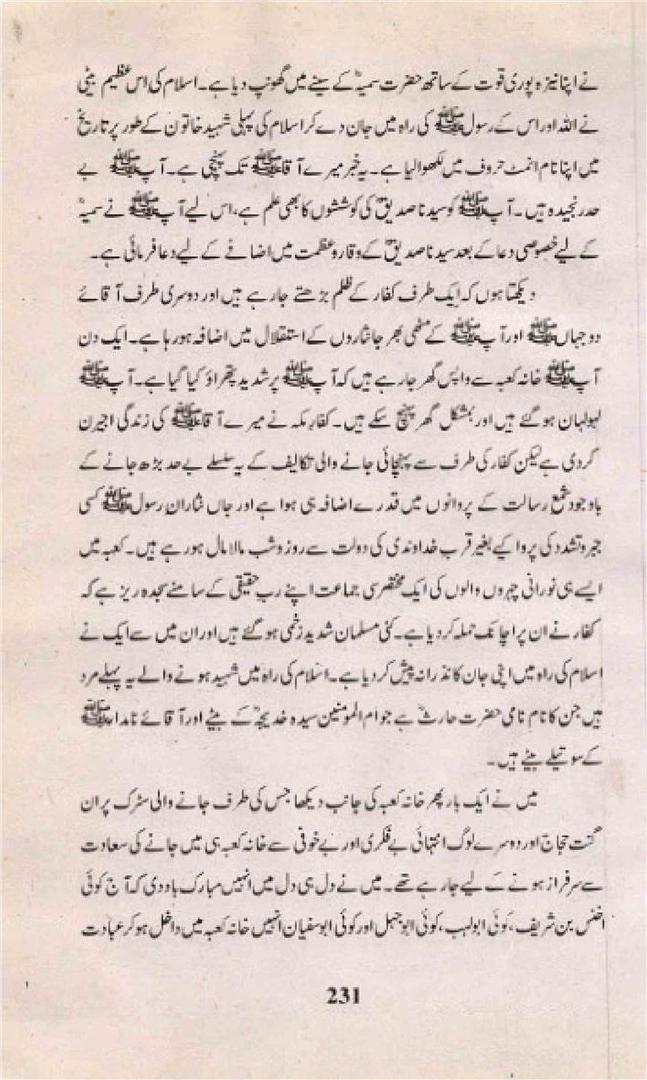 نے اپنا نیزہ پوری قوت کے ساتھ حضرت سمیہؓ کے سینے میں گھونپ دیا ہے۔ اسلام کی اس عظیم بیٹی
نے اللہ اور اس کے رسولﷺ کی راہ میں جان دے کر اسلام کی پہلی شہید خاتون کے طور پر تاریخ
میں اپنا نام انمٹ حروف میں لکھوا لیا ہے۔ یہ خبر میرے آقاﷺ تک پہنچی ہے۔ آپﷺ بے
حد رنجیدہ ہیں۔ آپﷺ کو سیدنا صدیقؓ کی کوششوں کا بھی علم ہے، اس لیے آپﷺ نے سمیہؓ
کے لیے خصوصی دعا کے بعد سیدنا صدیقؓ کے وقار و عظمت میں اضافے کے لیے دعا فرمائی ہے۔
دیکھتا ہوں کہ ایک طرف کفار کے ظلم بڑھتے جا رہے ہیں اور دوسری طرف آقائے
دو جہاںﷺ اور آپﷺ کے مٹھی بھر جانثاروں کے استقلال میں اضافہ ہو رہا ہے۔ ایک دن
آپﷺ خانہ کعبہ سے واپس گھر جا رہے ہیں کہ آپﷺ پر شدید پتھراؤ کیا گیا ہے۔ آپﷺ
لہولہان ہو گئے ہیں اور بمشکل گھر پہنچ سکے ہیں۔ کفار مکہ نے میرے آقاﷺ کی زندگی اجیرن
کر دی ہے لیکن کفار کی طرف سے پہنچائی جانے والی تکالیف کے یہ سلسلے بے حد بڑھ جانے کے
باوجود شمع رسالت کے پروانوں میں قدرے اضافہ ہی ہوا ہے اور جاں نثاران رسولﷺ کسی
جبر و تشدد کی پروا کیے بغیر قرب خداوندی کی دولت سے روز و شب مالا مال ہو رہے ہیں۔ کعبہ میں
ایسے ہی نورانی چہروں والوں کی ایک مختصر سی جماعت اپنے رب حقیقی کے سامنے سجدہ ریز ہے کہ
کفار نے ان پر اچانک حملہ کر دیا ہے۔ کئی مسلمان شدید زخمی ہو گئے ہیں اور ان میں سے ایک نے
اسلام کی راہ میں اپنی جان کا نذرانہ پیش کر دیا ہے۔ اسلام کی راہ میں شہید ہونے والے یہ پہلے مرد
ہیں جن کا نام نامی حضرت حارثؓ ہے جو ام المومنین سیدہ خدیجہؓ کے بیٹے اور آقائے نامدارﷺ
کے سوتیلے بیٹے ہیں۔
میں نے ایک بار پھر خانہ کعبہ کی جانب دیکھا جس کی طرف جانے والی سڑک پر ان
گنت حجاج اور دوسرے لوگ انتہائی بے فکری اور بے خوفی سے خانہ کعبہ ہی میں جانے کی سعادت
سے سرفراز ہونے کے لیے جا رہے تھے۔ میں نے دل ہی دل میں انہیں مبارک باد دی کہ آج کوئی
اخنس بن شریف، کوئی ابولہب، کوئی ابوجہل اور کوئی ابوسفیان انہیں خانہ کعبہ میں داخل ہو کر عبادت
231